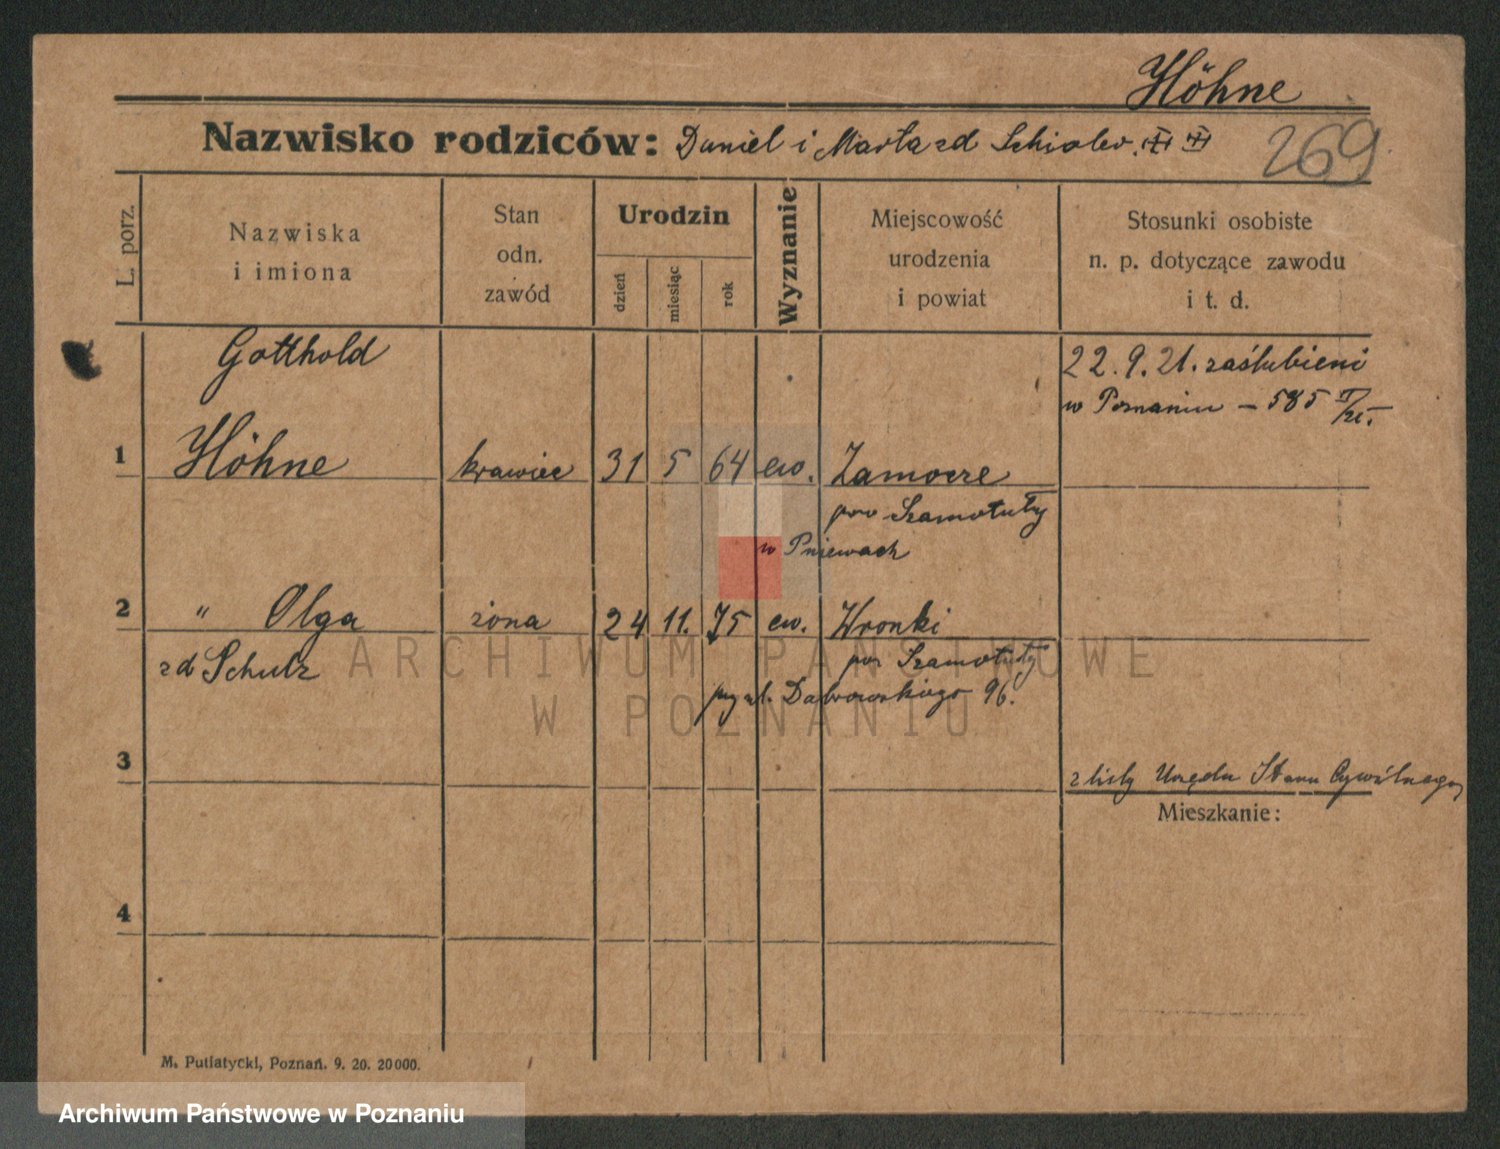 Höhne
Nazwisko rodziców: Daniel i Marta zd
269
L. porz.
Nazwiska i imiona
Stan odn. zawód
Urodzin
dzień
miesiąc
rok
Wyznanie
Miejscowość urodzenia i powiat
Stosunki osobiste n. p. dotyczące zawodu i t. d.
Gotthold
22. 9. 21. zaślubieni
w Poznaniu – 585
1 Höhne krawiec 31 5 64 ew. Zamorze
pow Szamotuły
w Pniewach
2 " Olga żona 24 11. 75 ew. Wronki
zd Schulz
pow Szamotuły
przy ul. Dąbrowskiego 96.
3
z listy Urzędu Stanu Cywilnego
Mieszkanie:
4
M. Putiatycki, Poznań. 9. 20. 20000.
ARCHIWUM PAŃSTWOWE
W POZNANIU
Archiwum Państwowe w Poznaniu